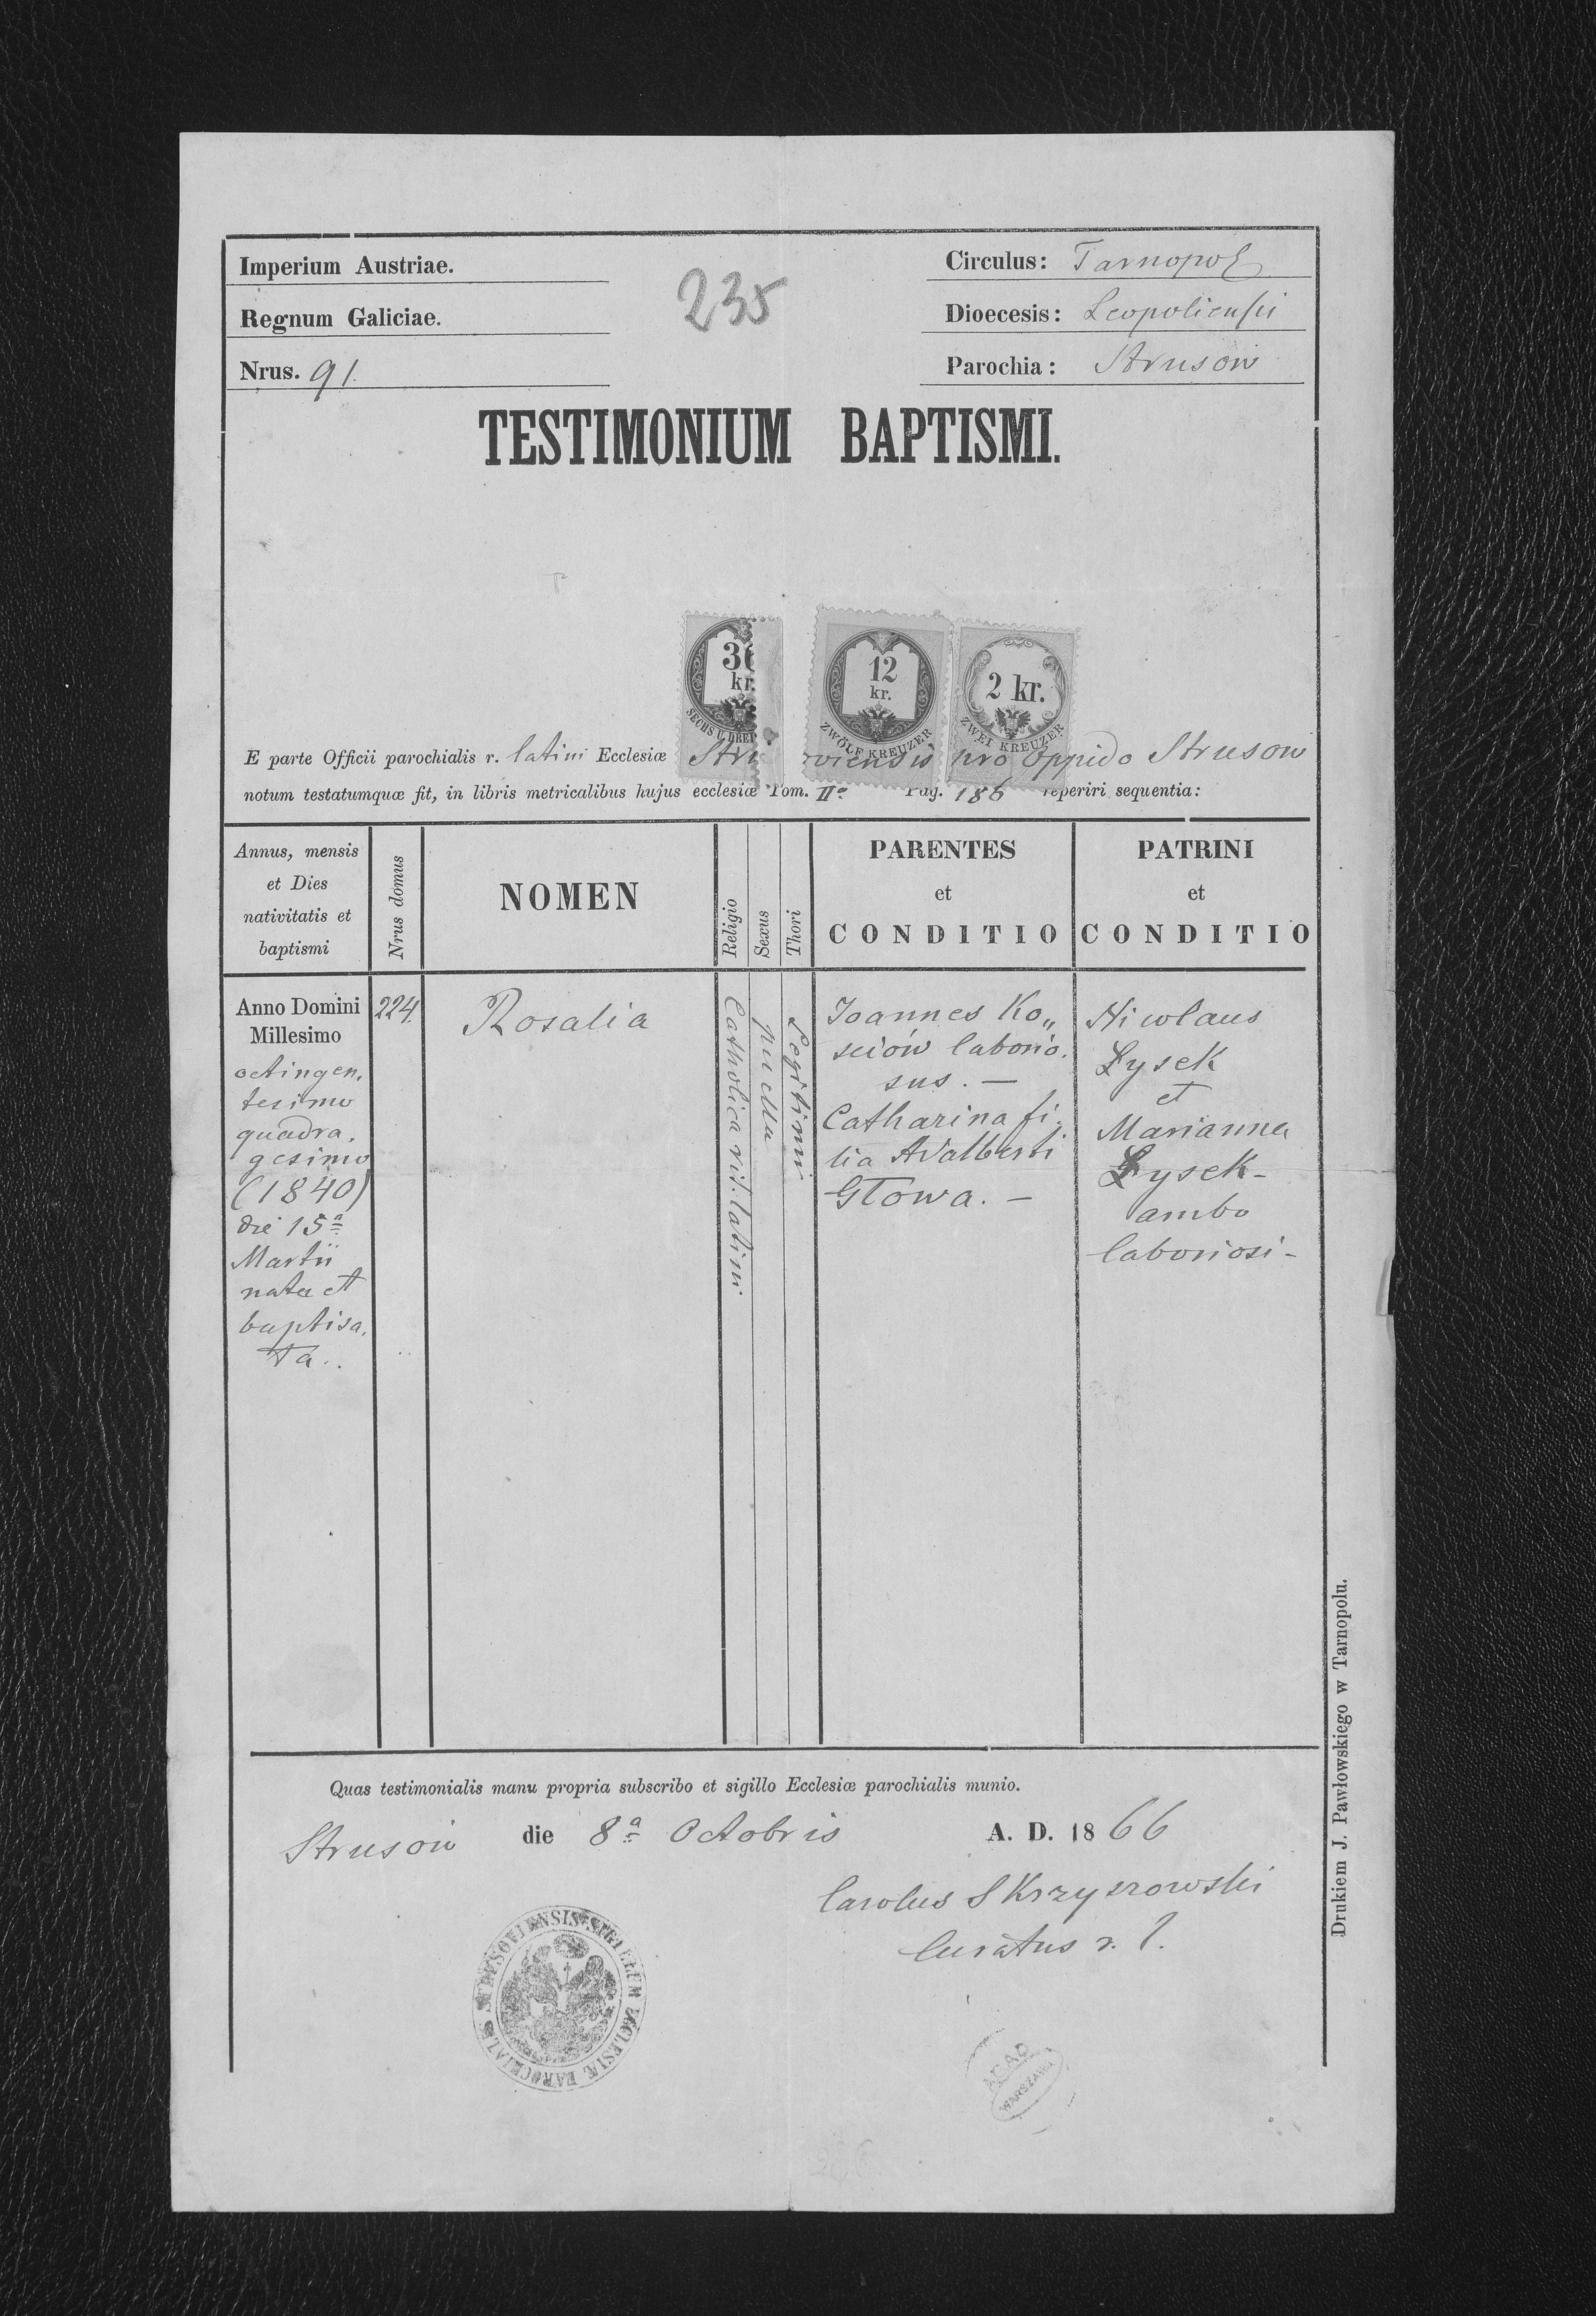 Imperium Austriae.
Regnum Galiciae.
Nrus. 91.
235
Circulus: Tarnopol
Dioecesis: Leopoliensis
Parochia: Strusów
TESTIMONIUM BAPTISMI.
36 kr. SECHS U. DREI
12 kr. ZWÖLF KREUZER
2 kr. ZWEI KREUZER
E parte Officii parochialis r. latini Ecclesiæ Stru oviensis pro oppido Strusów
notum testatumquæ fit, in libris metricalibus hujus ecclesiæ Tom. IIo. Pag. 186 reperiri sequentia:
Annus, mensis
et Dies
nativitatis et
baptismi
Nrus domus
NOMEN
Religio
Sexus
Thori
PARENTES
et
CONDITIO
PATRINI
et
CONDITIO
Anno Domini
Millesimo
octingen,
tesimo
quadra,
gesimo
(1840)
die 15a
Martii
nata et
baptisa,
ta..
224.
Rosalia
Catholica rit. latini
puella
Legitimi
Joannes Ko,,
sciów laborio,
sus. —
Catharina fi,
lia Adalberti
Głowa. —
Nicolaus
Łysek
et
Marianna
Łysek -
ambo
laboriosi -
Quas testimonialis manu propria subscribo et sigillo Ecclesiæ parochialis munio.
Strusów die 8a Octobris A. D. 1866
Carolus Skrzyszowski
Curatus r. l.
SIGILLUM ECCLESIÆ PAROCHIALIS STRUSOVIENSIS
AGAD
WARSZAWA
Drukiem J. Pawłowskiego w Tarnopolu.